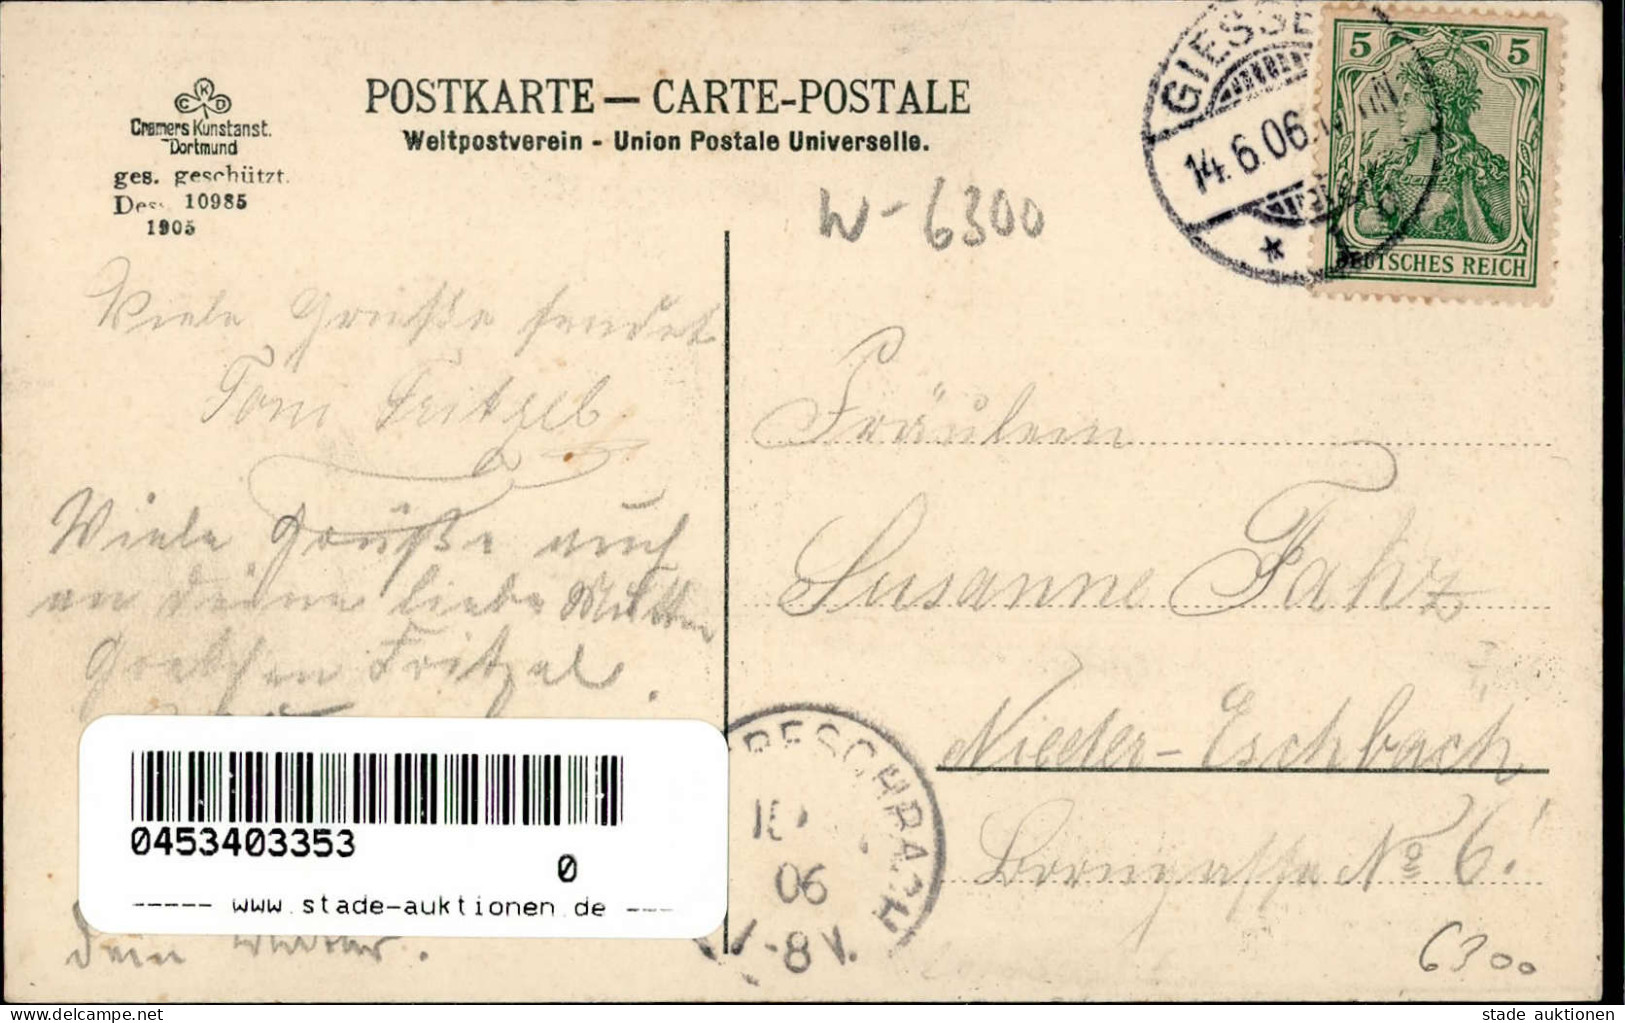 CKD
Cramers Kunstanst.
Dortmund
ges. geschützt.
Des. 10985
1905
POSTKARTE — CARTE-POSTALE
Weltpostverein - Union Postale Universelle.
W - 6300
GIESSE
14.6.06.
5 5
DEUTSCHES REICH
Viele Grüße sendet
Toni Fritzel
Viele Grüße auch
an deine liebe Mutter
Gretchen Fritzel.
Fräulein
Susanne Fahz
Nieder-Eschbach
Borngasse No 6!
ESCHBACH
06
-8V.
0453403353
0
----- www.stade-auktionen.de ---
dein
6300
stade auktionen